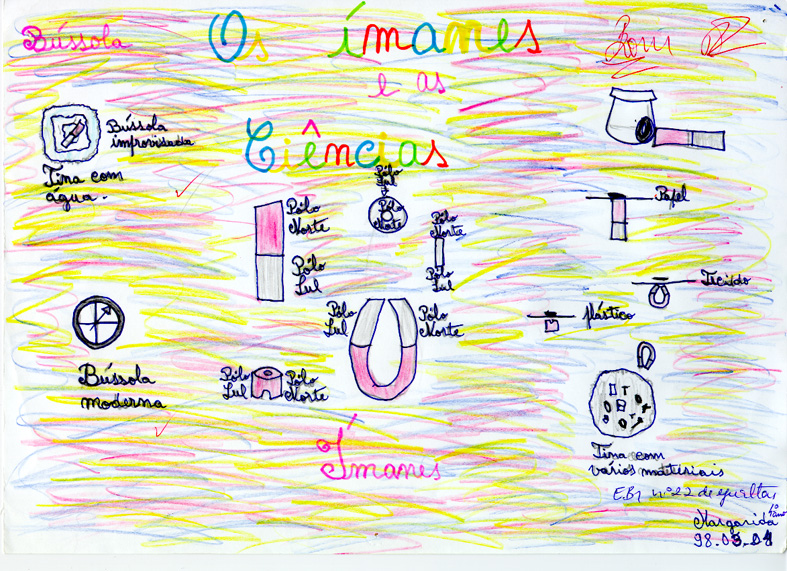 Bússola
Os ímanes
e as
Ciências
Bom
Bússola
improvisada
Tina com
água.
Pólo
Sul
Pólo
Norte
Pólo
Norte
Pólo
Sul
Pólo
Norte
Pólo
Sul
Papel
Tecido
plástico
Pólo
Sul
Pólo
Norte
Bússola
moderna
Pólo
Sul
Pólo
Norte
Ímanes
Tina com
vários materiais
E.B1 nº 22 de
Margarida
98.03.04